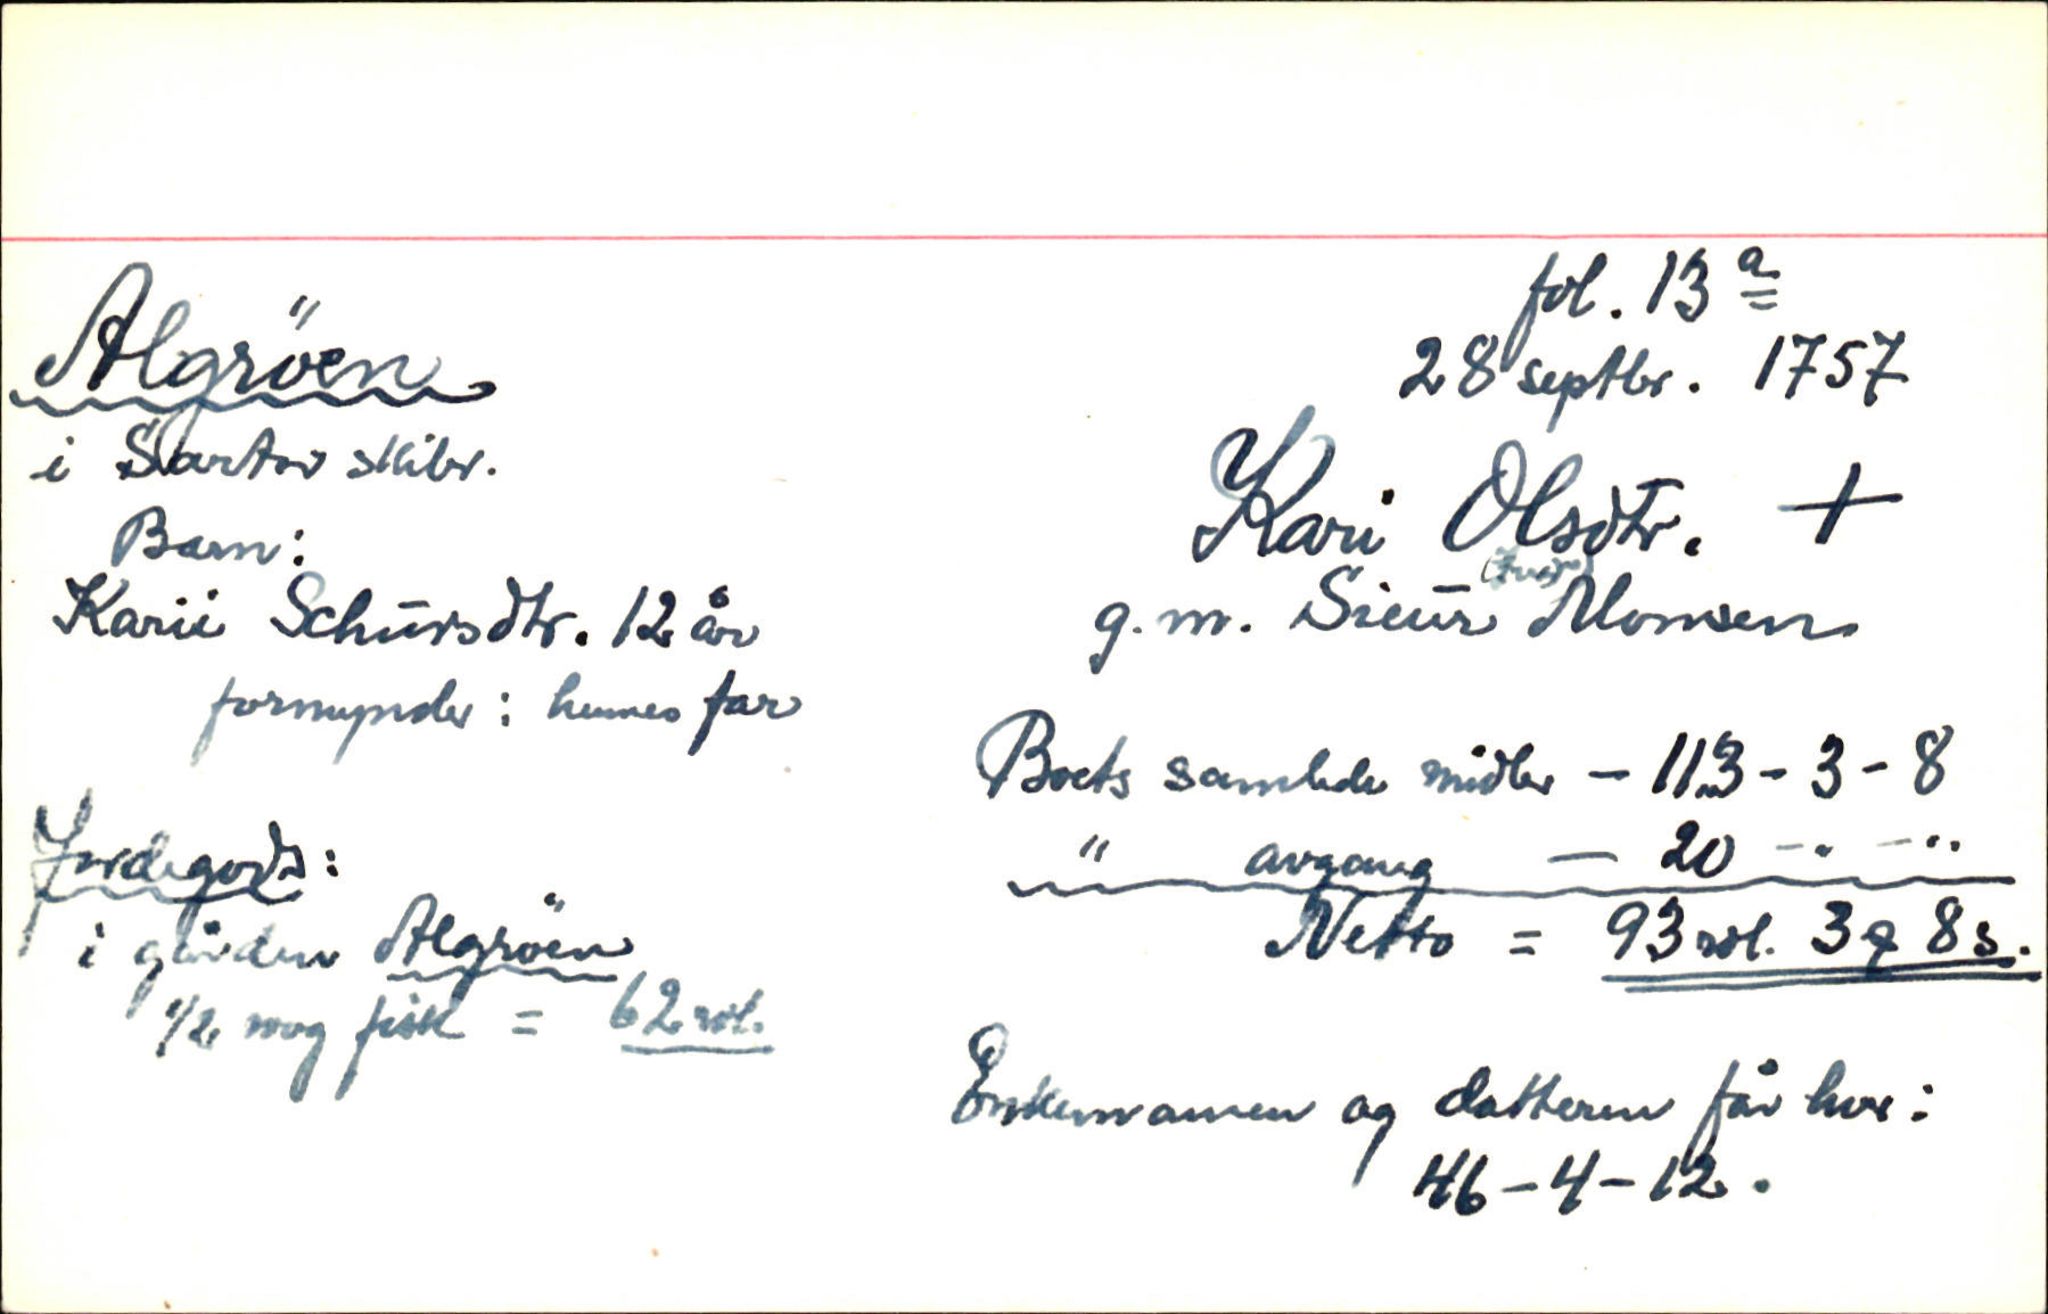 fol. 13 a
28 septbr. 1757
Algröen
i Sartor skibr.
Kari Olsdtr. +
g.m. Sieur Monsen
Barn:
Karii Schursdtr. 12 år
formynder: hennes far
Boets samlede midler - 113 - 3 - 8
" avgang - 20 - " - "
Netto = 93 rdl. 3 q 8 s.
Jordegods:
i gården Algröen
1/2 mæg fisk = 62 rdl.
Enkemannen og datteren får hver:
46 - 4 - 12.